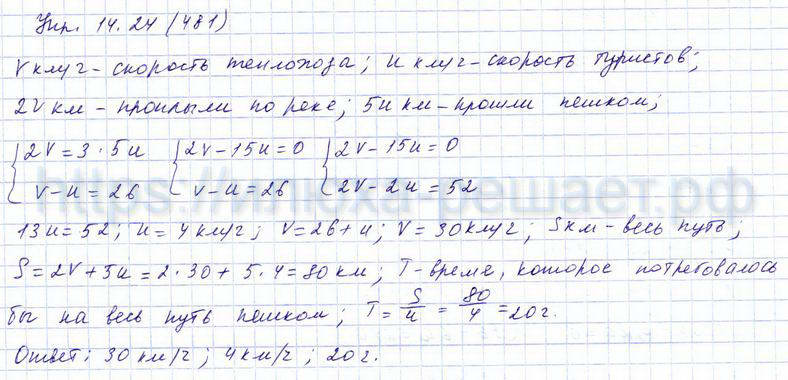 Упр. 14.24 (481)
V км/ч - скорость теплохода; u км/ч - скорость туристов;
2V км - проплыли по реке; 5u км - прошли пешком;
{2V = 3·5u {2V - 15u = 0 {2V - 15u = 0
V - u = 26 V - u = 26 2V - 2u = 52
https://илюха-решает.рф
13u = 52; u = 4 км/ч; V = 26 + u; V = 30 км/ч; S км - весь путь;
S = 2V + 5u = 2·30 + 5·4 = 80 км; T - время, которое потребовалось
бы на весь путь пешком; T = S/u = 80/4 = 20 ч.
Ответ: 30 км/ч; 4 км/ч; 20 ч.